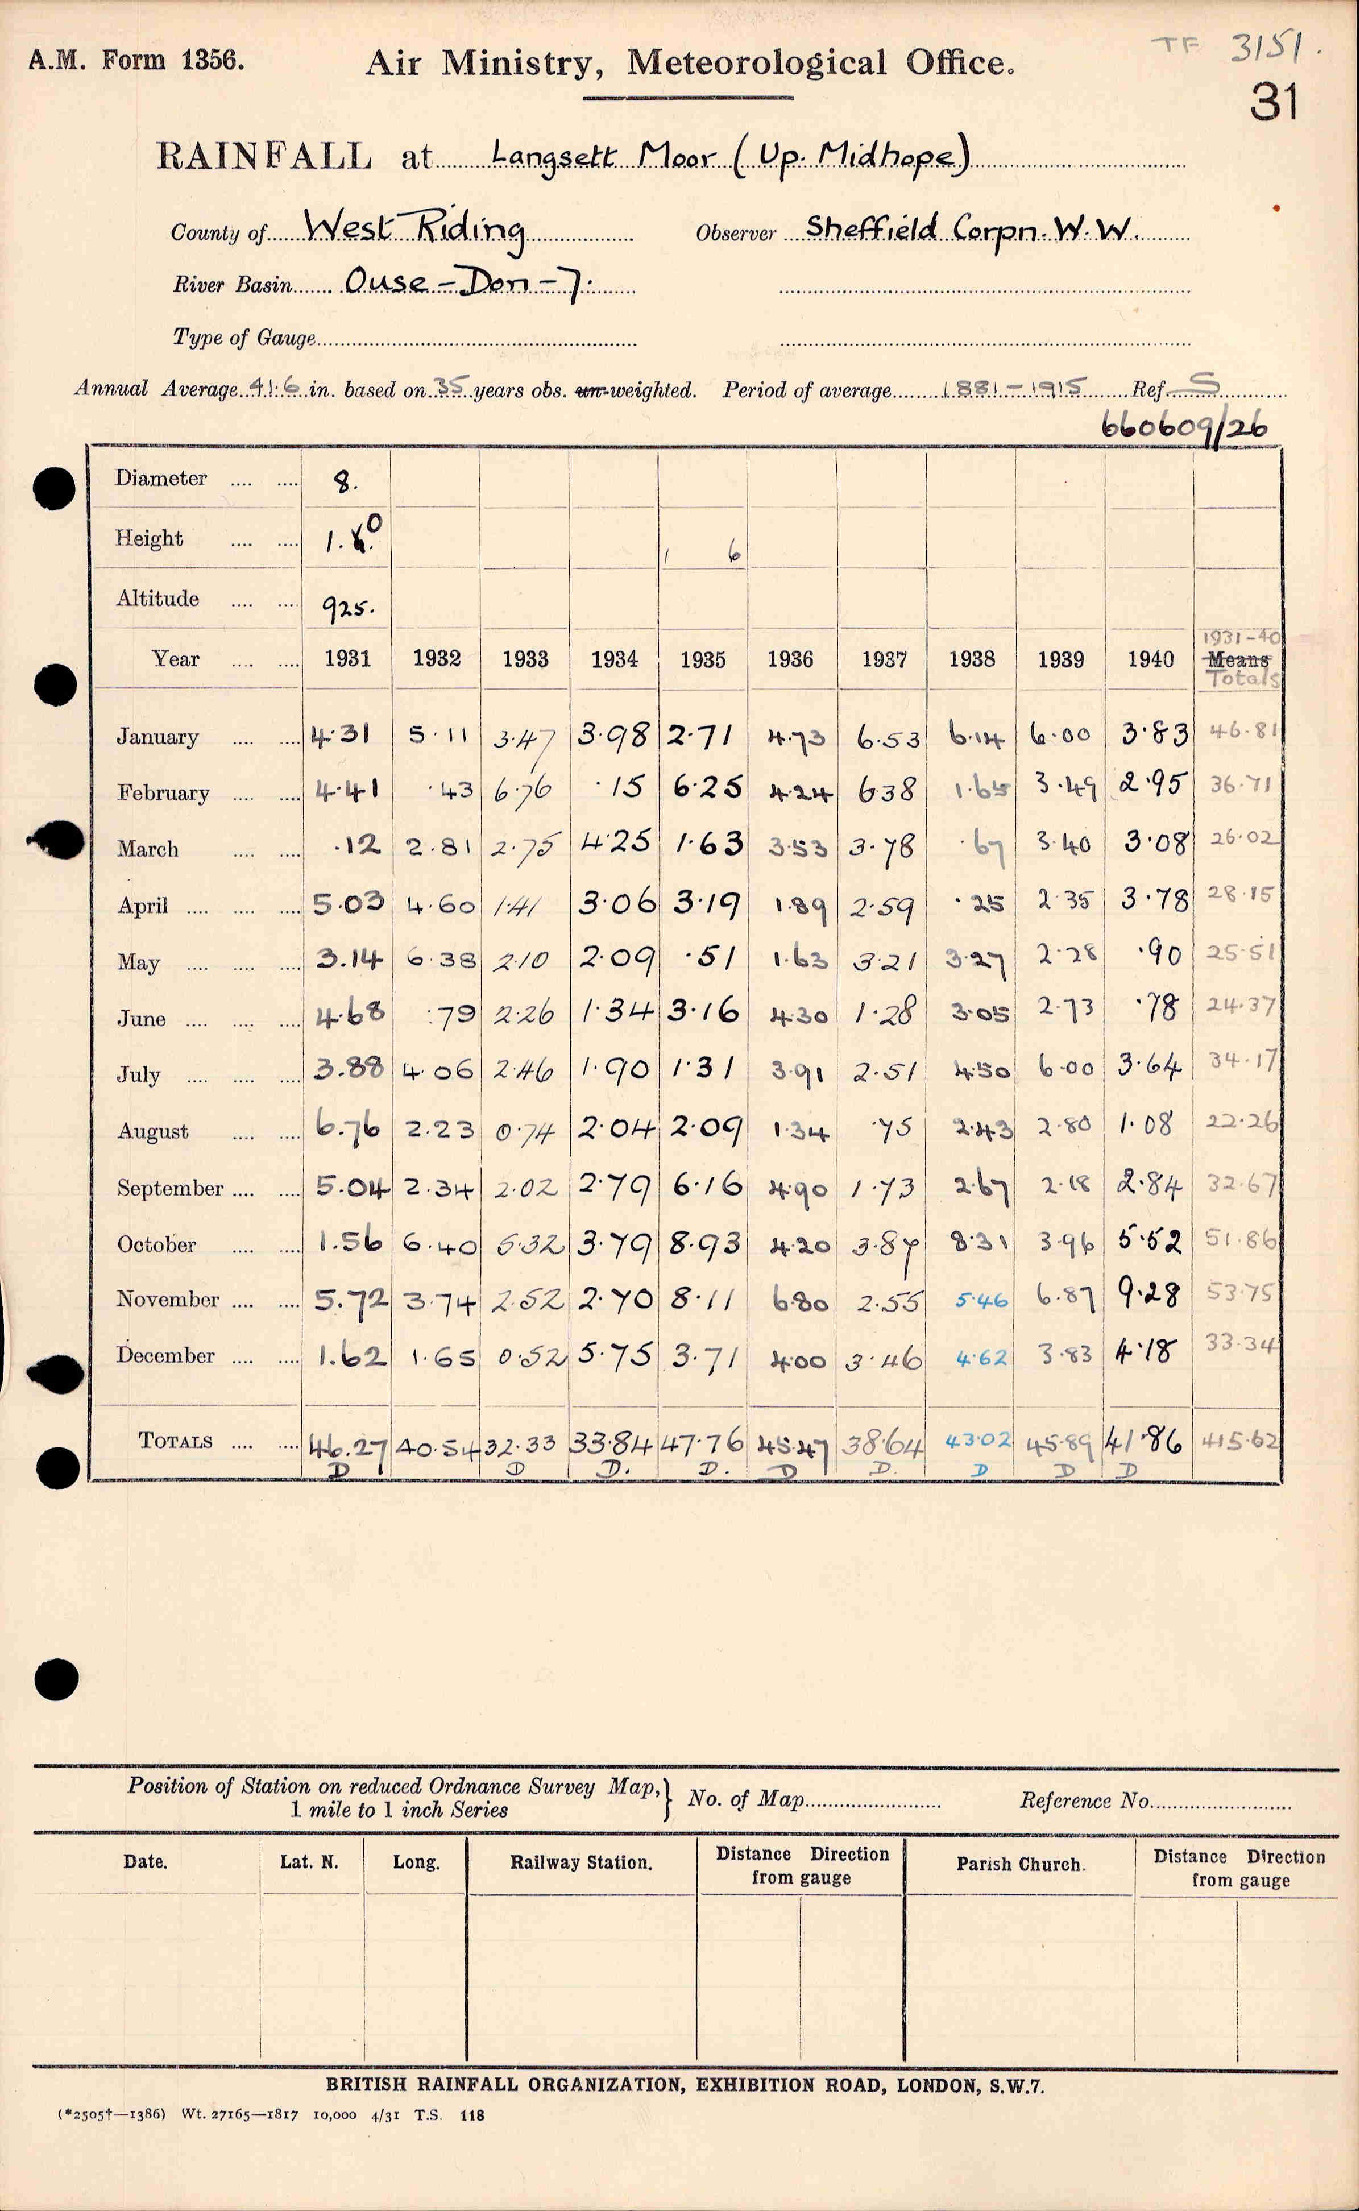 A.M. Form 1356.
Air Ministry, Meteorological Office.
TF 3151.
31
RAINFALL at Langsett Moor (Up. Midhope)
County of West Riding Observer Sheffield Corpn. W.W.
River Basin Ouse - Don - 7.
Type of Gauge
Annual Average 41.6 in. based on 35 years obs. un-weighted. Period of average 1881-1915 Ref. S
660609/26
Diameter 8.
Height 1. 0 1 6
Altitude 925.
1931-40
Year 1931 1932 1933 1934 1935 1936 1937 1938 1939 1940 Means
Totals
January 4.31 5.11 3.47 3.98 2.71 4.73 6.53 6.14 6.00 3.83 46.81
February 4.41 .43 6.76 .15 6.25 4.24 6.38 1.65 3.49 2.95 36.71
March .12 2.81 2.75 4.25 1.63 3.53 3.78 .67 3.40 3.08 26.02
April 5.03 4.60 1.41 3.06 3.19 1.89 2.59 .25 2.35 3.78 28.15
May 3.14 6.38 2.10 2.09 .51 1.63 3.21 3.27 2.28 .90 25.51
June 4.68 .79 2.26 1.34 3.16 4.30 1.28 3.05 2.73 .78 24.37
July 3.88 4.06 2.46 1.90 1.31 3.91 2.51 4.50 6.00 3.64 34.17
August 6.76 2.23 0.74 2.04 2.09 1.34 .75 2.43 2.80 1.08 22.26
September 5.04 2.34 2.02 2.79 6.16 4.90 1.73 2.67 2.18 2.84 32.67
October 1.56 6.40 5.32 3.79 8.93 4.20 3.87 8.31 3.96 5.52 51.86
November 5.72 3.74 2.52 2.70 8.11 6.80 2.55 5.46 6.87 9.28 53.75
December 1.62 1.65 0.52 5.75 3.71 4.00 3.46 4.62 3.83 4.18 33.34
TOTALS 46.27 40.54 32.33 33.84 47.76 45.47 38.64 43.02 45.89 41.86 415.62
D D D. D. D D. D D D
Position of Station on reduced Ordnance Survey Map, } No. of Map Reference No.
1 mile to 1 inch Series
Date. Lat. N. Long. Railway Station. Distance Direction from gauge Parish Church. Distance Direction from gauge
BRITISH RAINFALL ORGANIZATION, EXHIBITION ROAD, LONDON, S.W.7.
(*2505†—1386) Wt. 27165—1817 10,000 4/31 T.S. 118